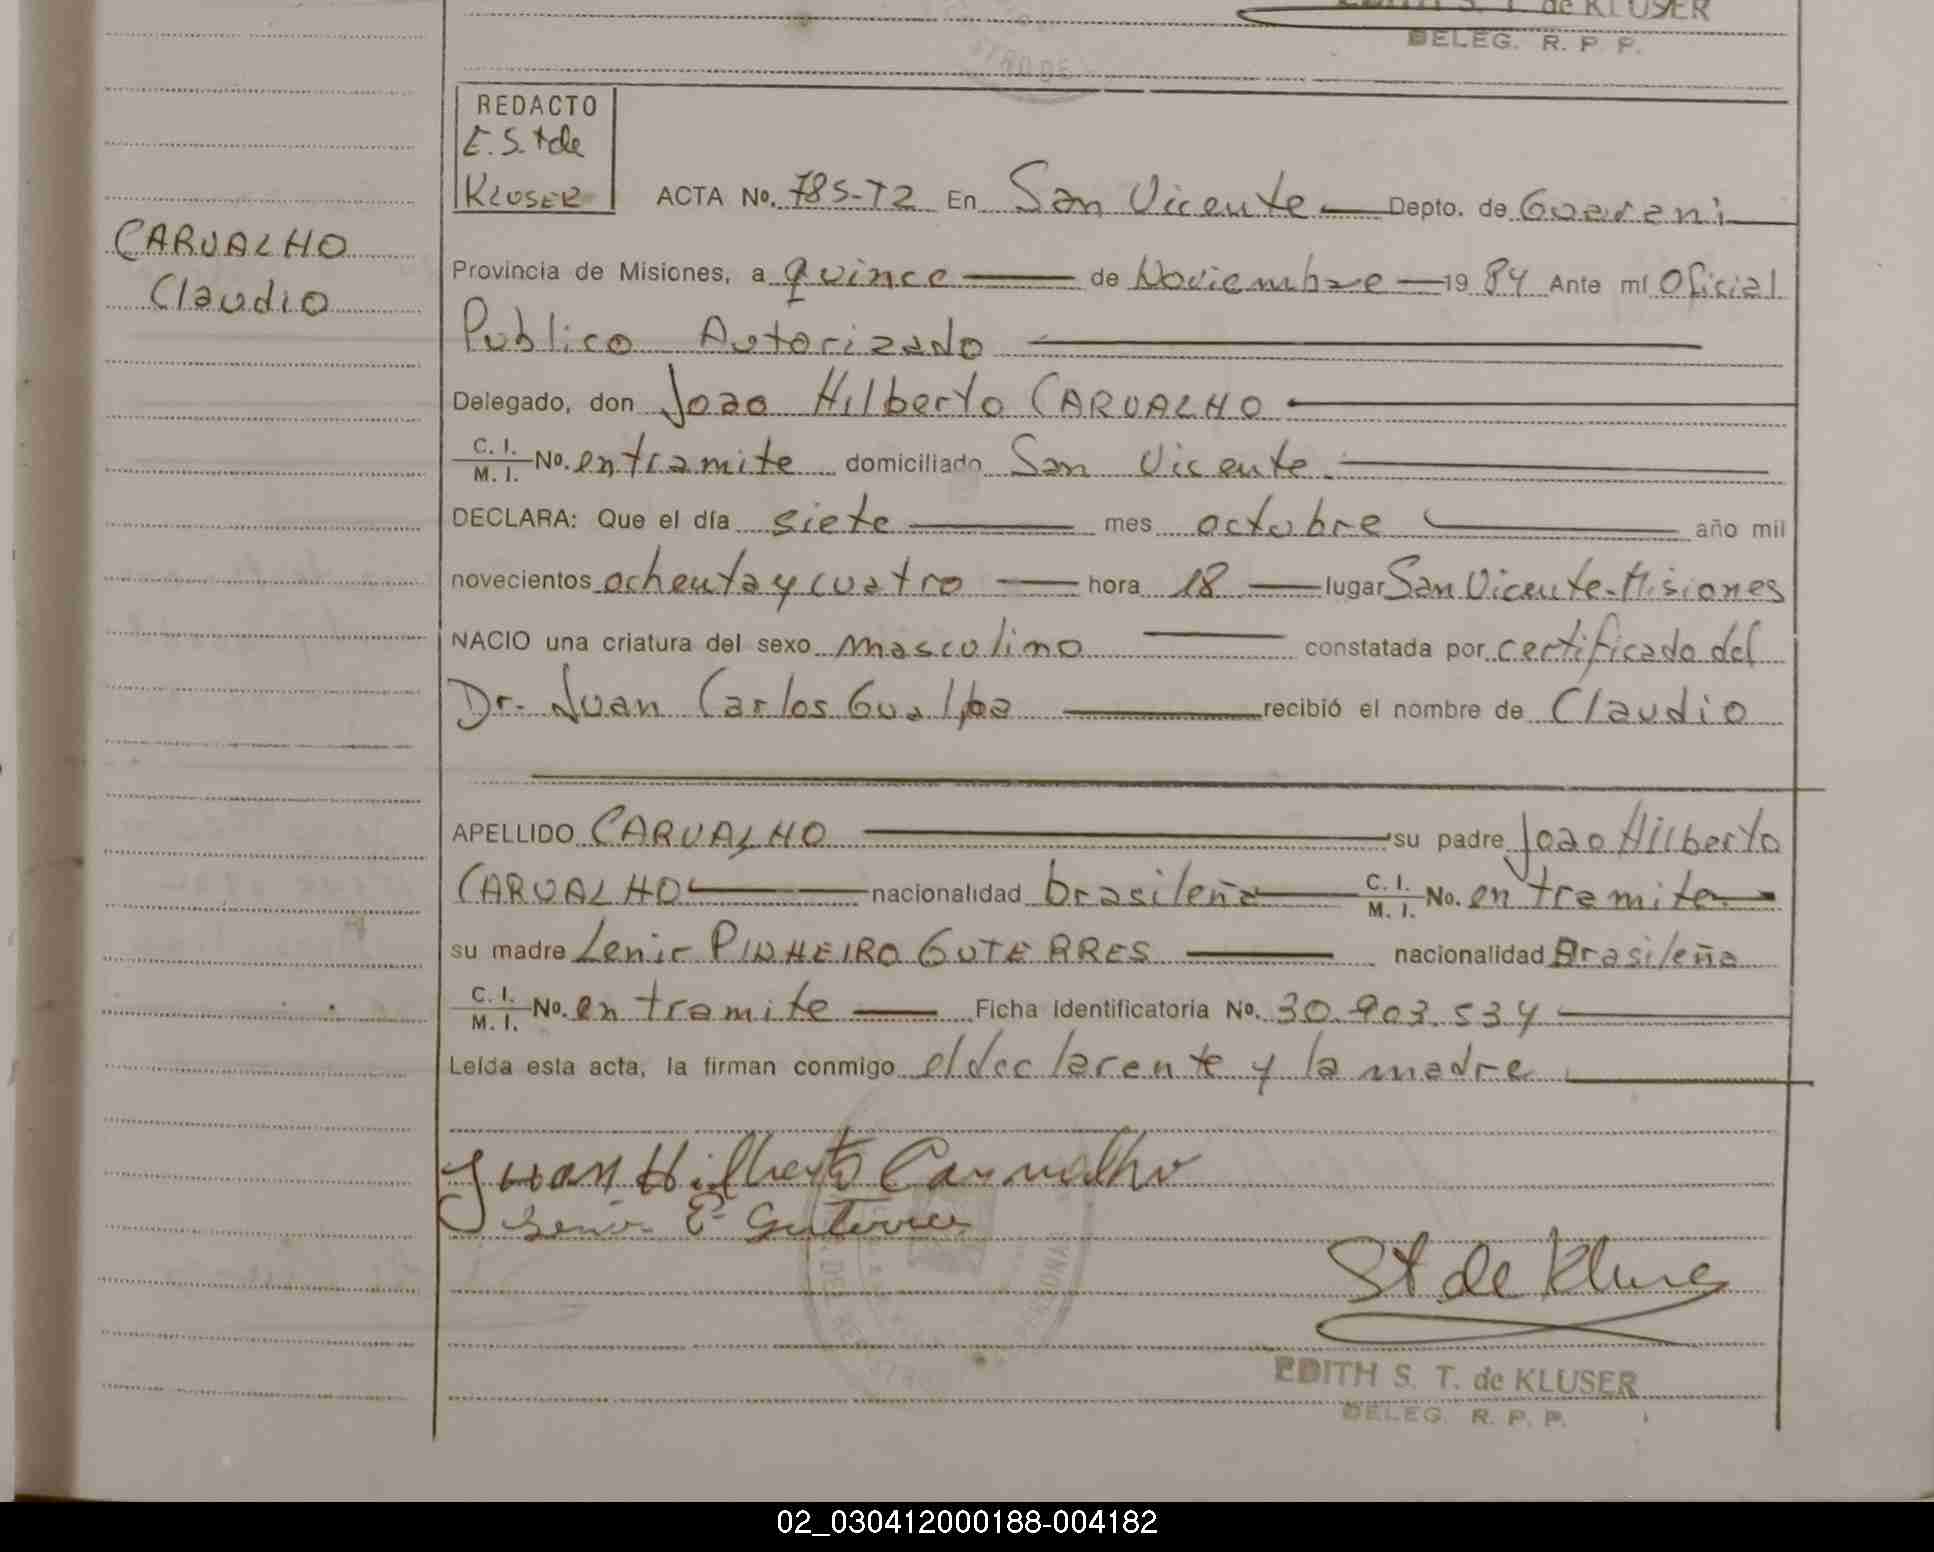 EDITH S. T. de KLUSER
DELEG. R. P. P.
REDACTO
E. S. t de
KLUSER
ACTA No. 785-T2 En San Vicente Depto. de Guarani
CARVALHO
Claudio
Provincia de Misiones, a quince de Noviembre 19 84 Ante mí Oficial
Publico Autorizado
Delegado, don Joao Hilberto CARVALHO
C. I. M. I. No. en tramite domiciliado San Vicente
DECLARA: Que el día siete mes octubre año mil
novecientos ochenta y cuatro hora 18 lugar San Vicente-Misiones
NACIO una criatura del sexo masculino constatada por certificado del
Dr. Juan Carlos Gualpa recibió el nombre de Claudio
APELLIDO CARVALHO su padre Joao Hilberto
CARVALHO nacionalidad brasileña C. I. M. I. No. en tramite
su madre Lenir PINHEIRO GUTERRES nacionalidad Brasileña
C. I. M. I. No. en tramite Ficha Identificatoria No. 30.903.534
Leída esta acta, la firman conmigo el declarente y la madre
Juan Hilberto Carvalho
St de Kluser
EDITH S. T. de KLUSER
DELEG. R. P. P.
02_030412000188-004182